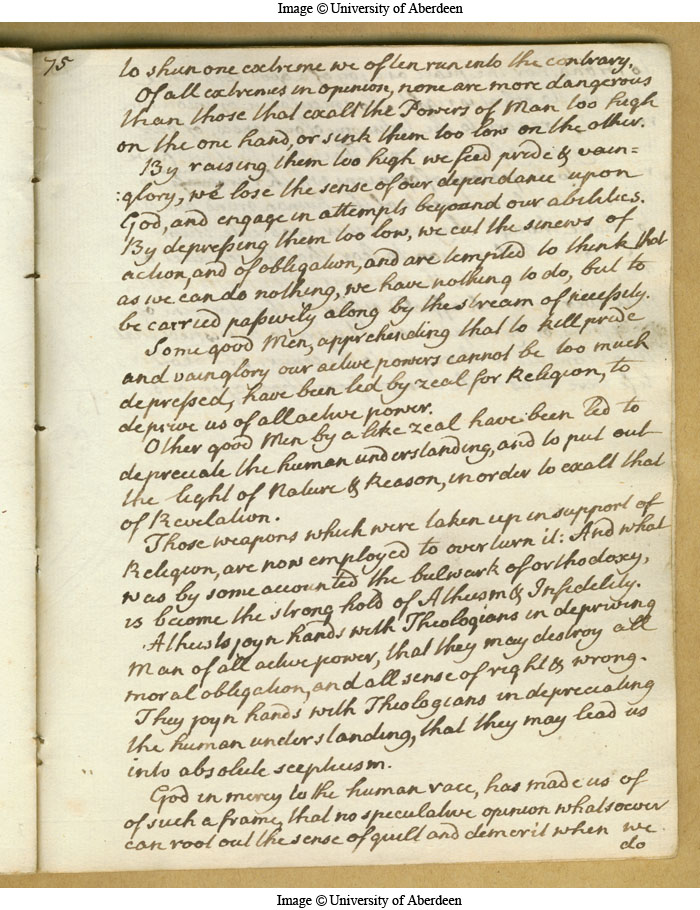 Image © University of Aberdeen
75
to shun one extreme we often run into the contrary.
Of all extremes in opinion, none are more dangerous
than those that exall the Powers of Man too high
on the one hand, or sink them too low on the other.
By raising them too high we feed pride & vain=
:glory, we lose the sense of our dependance upon
God, and engage in attempts beyoand our abilities.
By depreſsing them too low, we cut the sinews of
action, and of obligation, and are tempted to think that
as we can do nothing, we have nothing to do, but to
be carried paſsively along by the stream of neceſsity.
Some good Men, apprehending that to kill pride
and vain glory our active powers cannot be too much
depreſsed, have been led by zeal for Religion, to
deprive us of all active power.
Other good Men by a like zeal have been led to
depreciate the human understanding, and to put out
the light of Nature & Reason, in order to exalt that
of Revelation.
Those weapons which were taken up in support of
Religion, are now employed to overturn it: And what
was by some accounted the bulwark of orthodoxy,
is become the strong hold of Atheism & Infidelity.
Atheists joyn hands with Theologians in depriving
Man of all active power, that they may destroy all
moral obligation, and all sense of right & wrong.
They joyn hands with Theologians in depreciating
the human understanding, that they may lead us
into absolute scepticism.
God in mercy to the human race, has made us of
of such a frame, that no speculative opinion whatsoever
can root out the sense of guilt and demerit when we
do
Image © University of Aberdeen